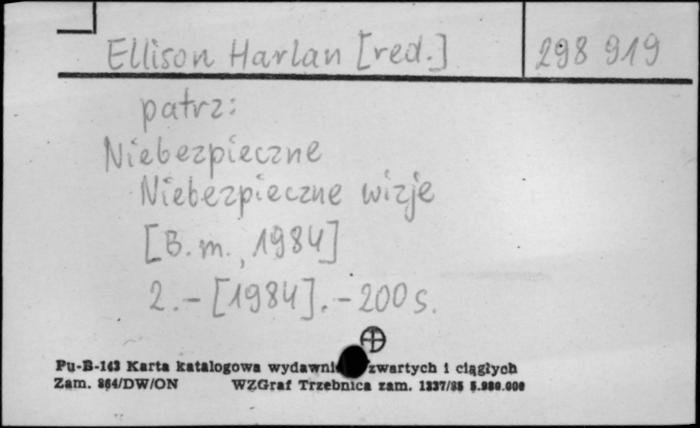 Ellison Harlan [red.] 298 919
patrz:
Niebezpieczne
Niebezpieczne wizje
[B.m., 1984]
2.-[1984].-200 s.
Pu-B-143 Karta katalogowa zwartych i ciągłych
Zam. 864/DW/ON WZGraf Trzebnica zam. 1337/85 5.980.000